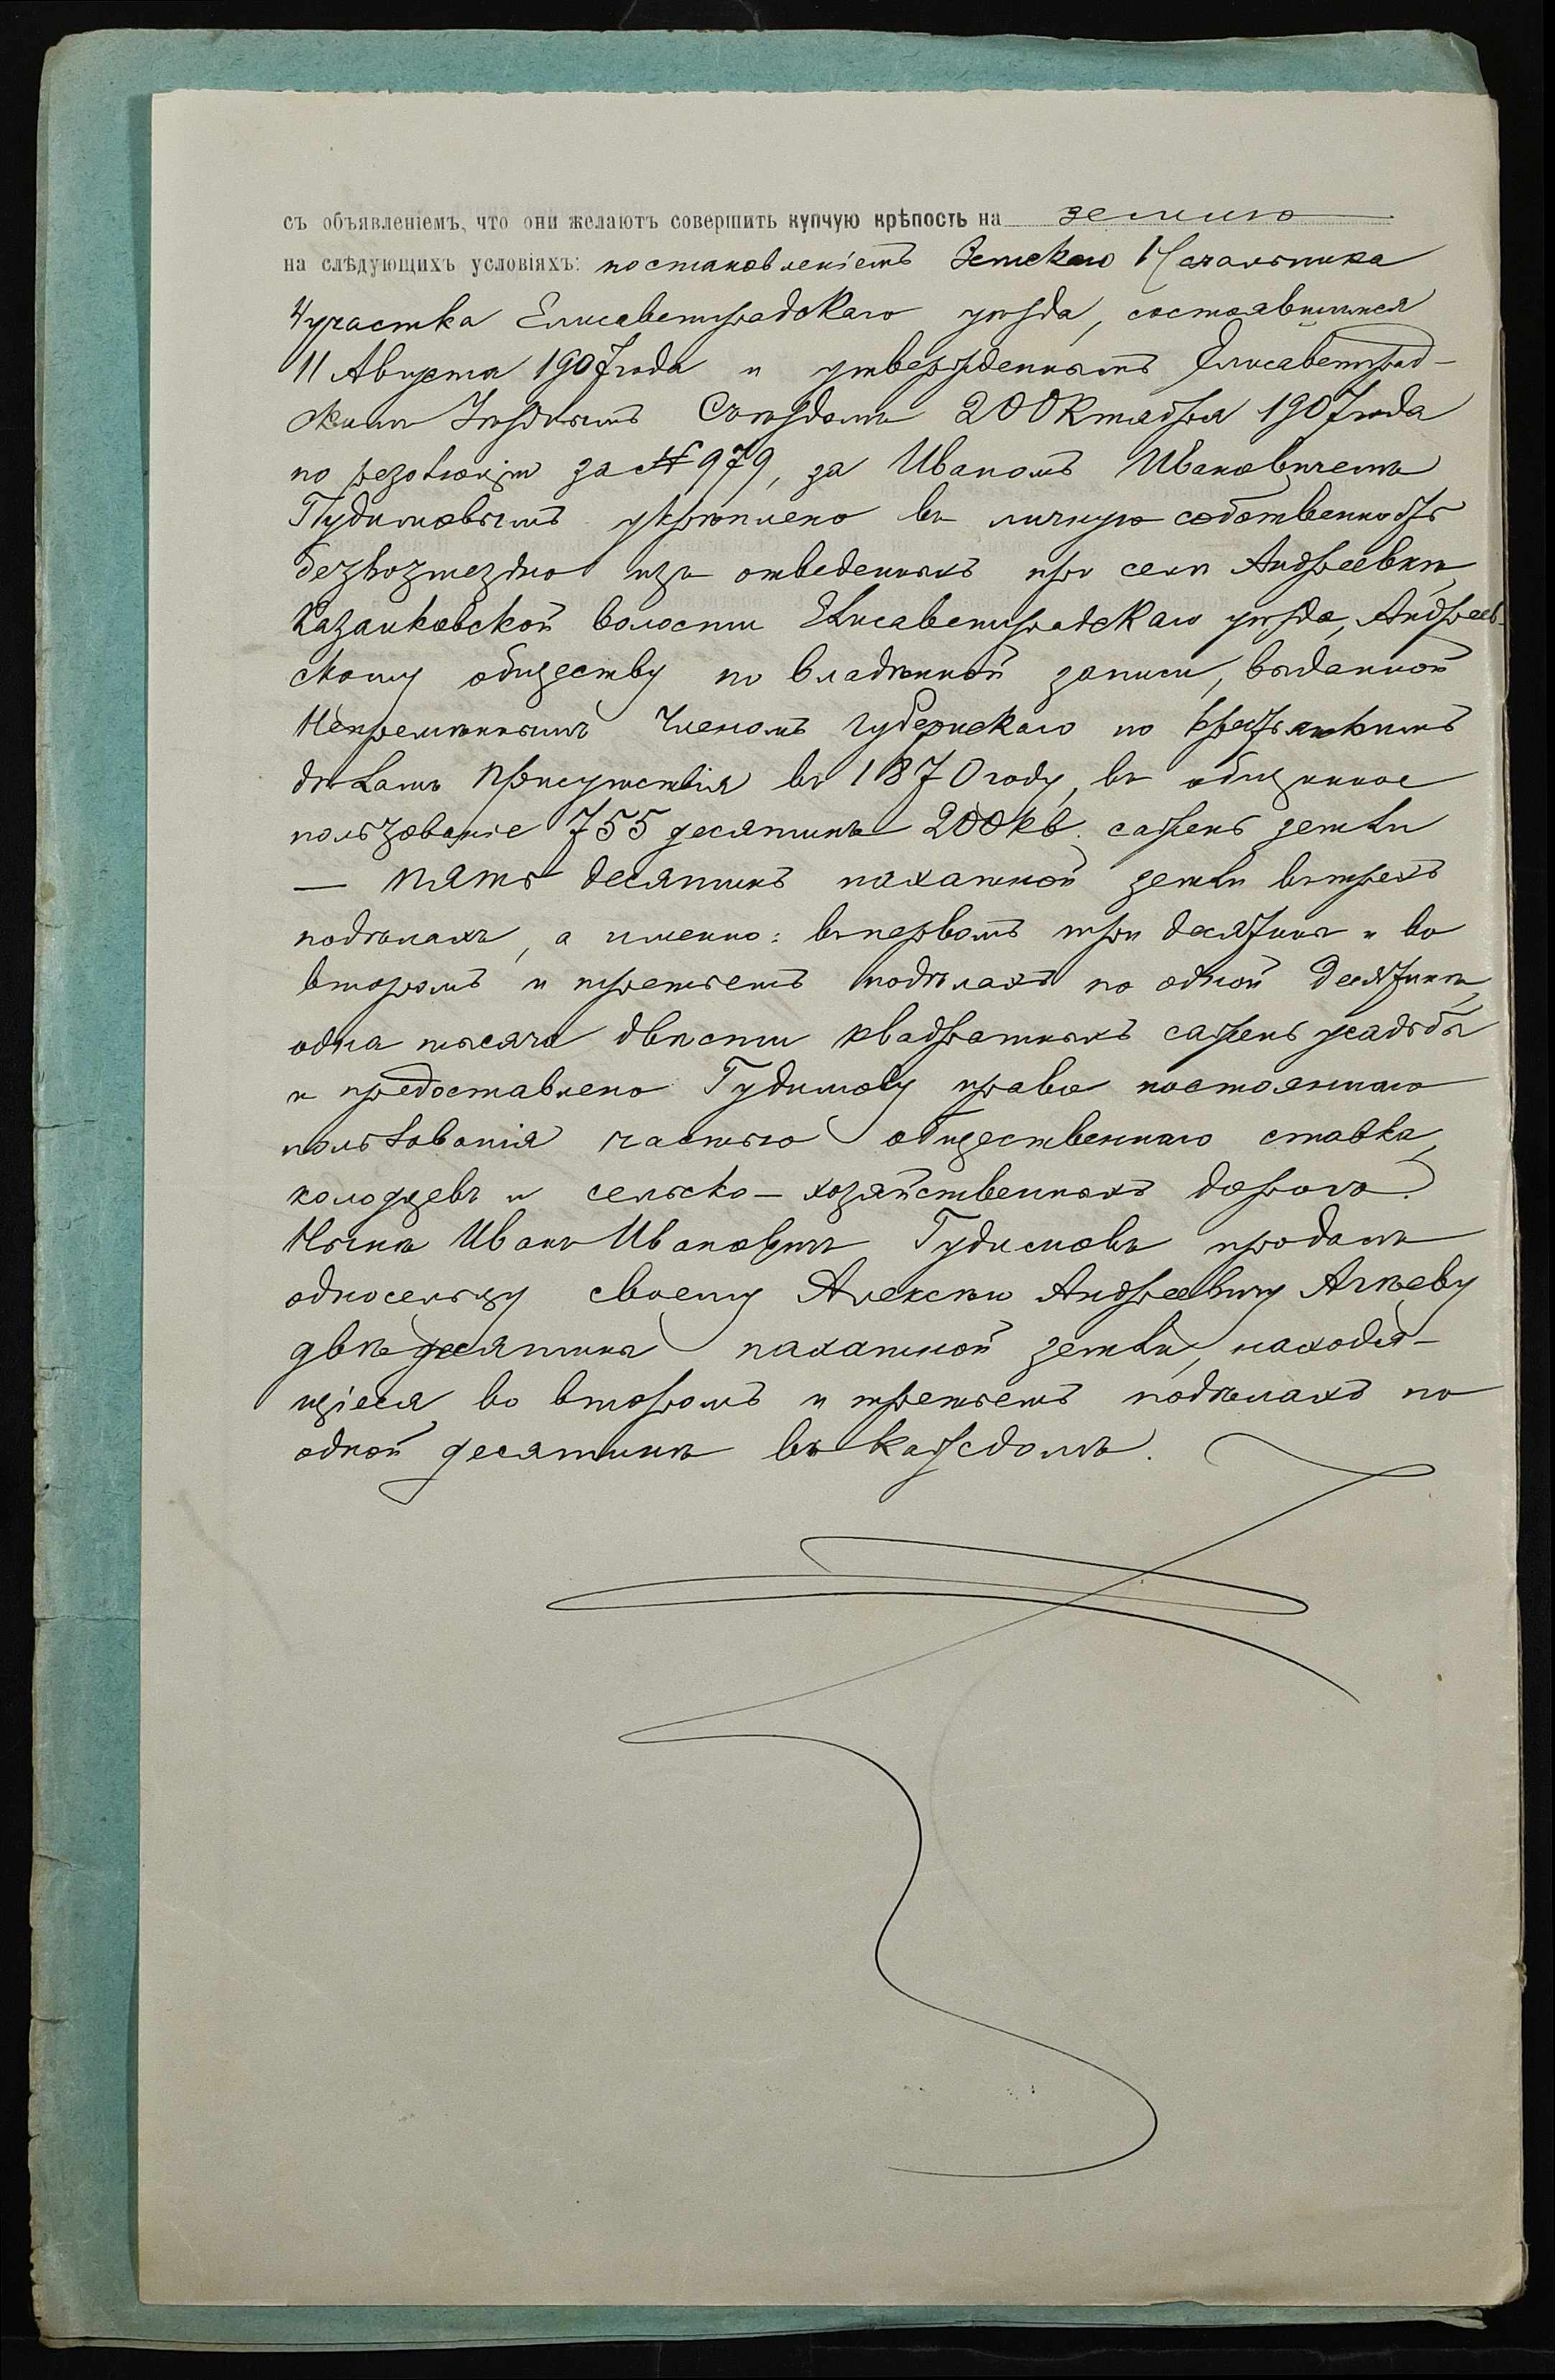 съ объявленіемъ, что они желаютъ совершить купчую крѣпость на землю
на слѣдующихъ условіяхъ: постановленіемъ Земскаго Начальника
4 участка Елисаветградскаго уѣзда, состоявшимся
11 Августа 1907 года и утвержденнымъ Елисаветград-
скимъ Уѣзднымъ Съѣздомъ 20 Октября 1907 года
по резолюціи за № 979, за Иваномъ Ивановичемъ
Гудимовымъ укрѣплено въ личную собственность
безвозмездно изъ отведенныхъ при селѣ Андреевкѣ,
Казанковской волости Елисаветградскаго уѣзда, Андреев-
скому обществу по владѣнной записи, выданной
Непремѣннымъ Членомъ Губернскаго по крестьянскимъ
дѣламъ Присутствія въ 1870 году, въ общинное
пользованіе 755 десятинъ 200 кв. сажень земли
— пять десятинъ пахатной земли въ трехъ
подѣлахъ, а именно: въ первомъ три десятины и во
второмъ и третьемъ подѣлахъ по одной десятинѣ,
одна тысяча двѣсти квадратныхъ сажень усадьбы
и предоставлено Гудимову право постояннаго
пользованія частью общественнаго ставка,
колодцевъ и сельско-хозяйственныхъ дорогъ.
Нынѣ Иванъ Ивановичъ Гудимовъ продалъ
односельцу своему Алексѣю Андреевичу Агѣеву
двѣ десятины пахатной земли, находя-
щіеся во второмъ и третьемъ подѣлахъ по
одной десятинѣ въ каждомъ.